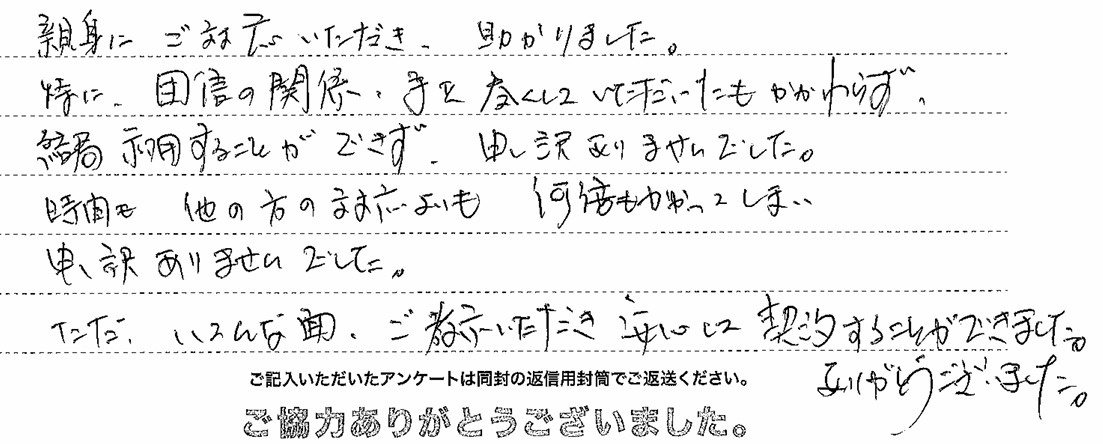 親身に ご対応いただき、助かりました。
特に、団信の関係、手を尽くしていただいたにもかかわらず、
結局 利用することができず、申し訳ありませんでした。
時間も 他の方の対応よりも 何倍もかかってしまい
申し訳ありませんでした。
ただ、いろんな面、ご教示いただき 安心して 契約することができました。
ありがとうございました。
ご記入いただいたアンケートは同封の返信用封筒でご返送ください。
ご協力ありがとうございました。